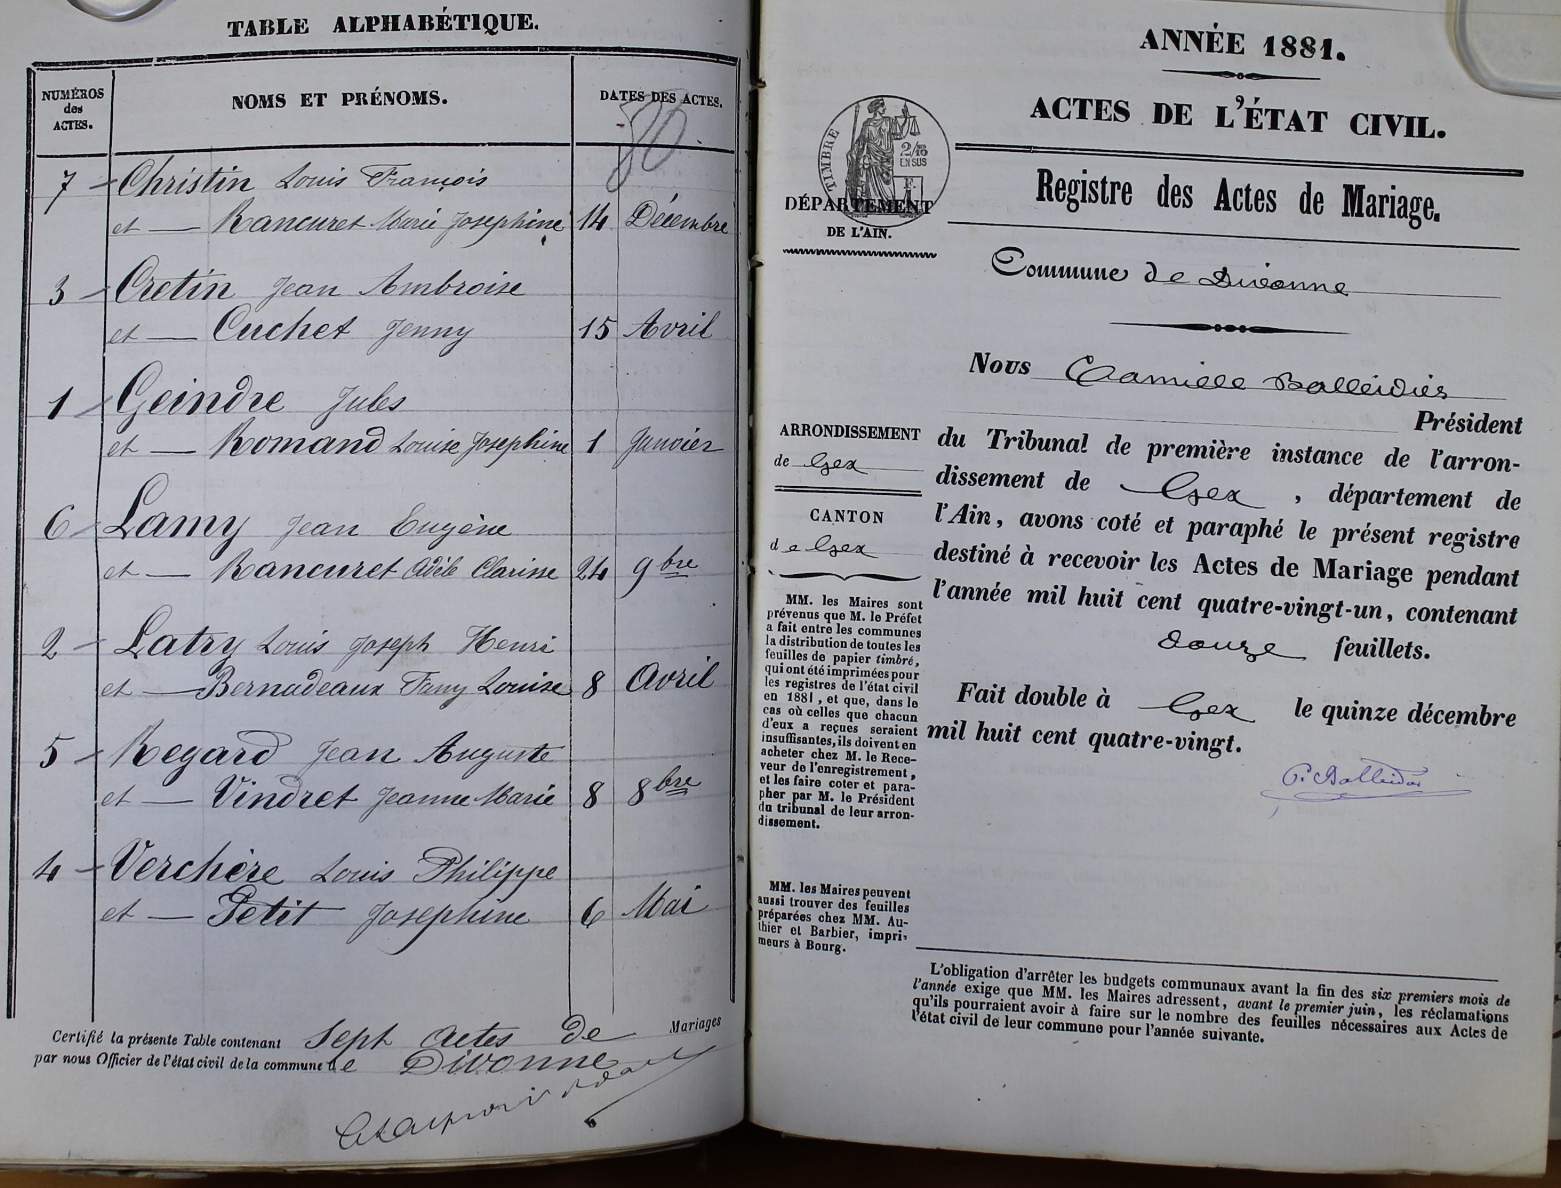 TABLE ALPHABÉTIQUE.
NUMÉROS des ACTES.
NOMS ET PRÉNOMS.
DATES DES ACTES.
80
7 Christin Louis François
et — Rancuret Marie Josephine 14 Décembre
3 Cretin Jean Ambroise
et — Cuchet Jenny 15 Avril
1 Geindre Jules
et — Romand Louise Josephine 1 Janvier
6 Lamy Jean Eugène
et — Rancuret Adèle Clarisse 24 9bre
2 Latry Louis Joseph Henri
et — Bernadeaux Fany Louise 8 Avril
5 Regard Jean Auguste
et — Vindret Jeanne Marie 8 8bre
4 Verchère Louis Philippe
et — Petit Josephine 6 Mai
Certifié la présente Table contenant Sept actes de Mariages
par nous Officier de l'état civil de la commune de Divonne
ANNÉE 1881.
ACTES DE L'ÉTAT CIVIL.
TIMBRE
2/10
EN SUS
DÉPARTEMENT
DE L'AIN.
Registre des Actes de Mariage.
Commune de Divonne
Nous Camille Balleidier
Président
du Tribunal de première instance de l'arron-
dissement de Gex, département de
l'Ain, avons coté et paraphé le présent registre
destiné à recevoir les Actes de Mariage pendant
l'année mil huit cent quatre-vingt-un, contenant
douze feuillets.
Fait double à Gex le quinze décembre
mil huit cent quatre-vingt.
C. Balleidier
ARRONDISSEMENT
de Gex
CANTON
de Gex
MM. les Maires sont
prévenus que M. le Préfet
a fait entre les communes
la distribution de toutes les
feuilles de papier timbré,
qui ont été imprimées pour
les registres de l'état civil
en 1881, et que, dans le
cas où celles que chacun
d'eux a reçues seraient
insuffisantes, ils doivent en
acheter chez M. le Rece-
veur de l'enregistrement,
et les faire coter et para-
pher par M. le Président
du tribunal de leur arron-
dissement.
MM. les Maires peuvent
aussi trouver des feuilles
préparées chez MM. Au-
thier et Barbier, impri-
meurs à Bourg.
L'obligation d'arrêter les budgets communaux avant la fin des six premiers mois de
l'année exige que MM. les Maires adressent, avant le premier juin, les réclamations
qu'ils pourraient avoir à faire sur le nombre des feuilles nécessaires aux Actes de
l'état civil de leur commune pour l'année suivante.